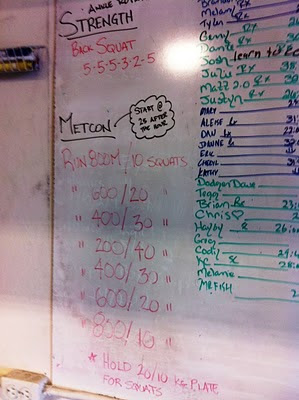 ANKLE
STRENGTH
BACK SQUAT
5-5-5-3-2-5
METCON
START @
25 AFTER
THE HOUR
RUN 800M / 10 SQUATS
" 600/20 "
" 400/30 "
" 200/40 "
" 400/30 "
" 600/20 "
" 800/10 "
* HOLD 20/10 kg PLATE
FOR SQUATS
Brandon
Melany
Tyler
Gerry
Dante
Josh learn to
Julie Rx
Matt 2.0 Rx
Justyn
MARY
ALEKE
DAN
JEANNE
ERIC
CHERYL
KATHY
Dodger Dave
Tegan
Brian
Chris
Hayley
Greg
Cody
KC
Melanie
MR FISH